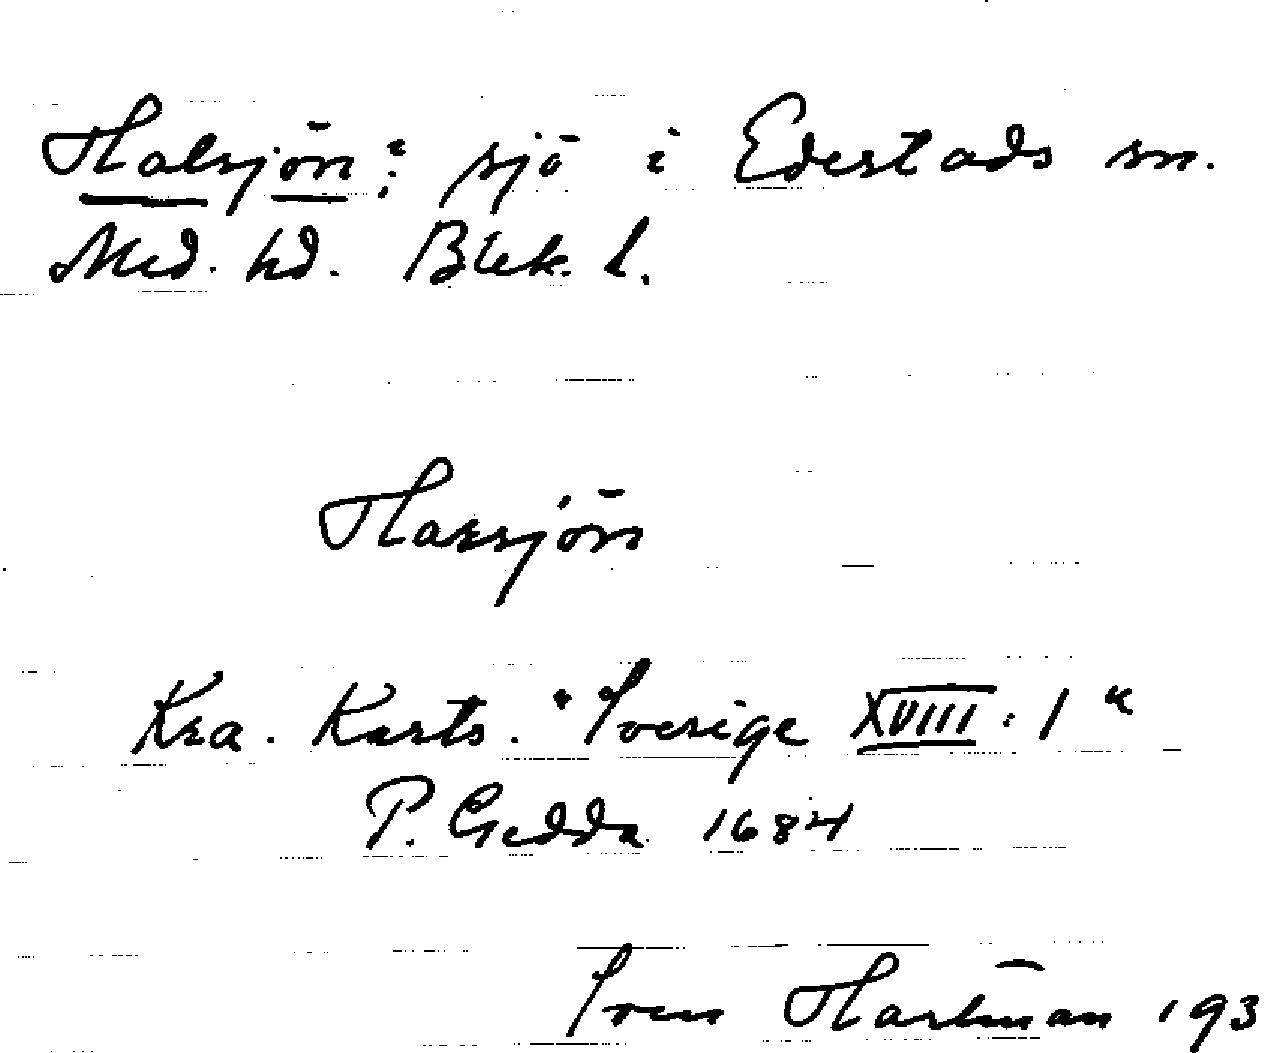 Halsjön: sjö i Edestads sn.
Med. hd. Blek. l.
Harsjön
Kra. Kartv. "Sverige XVIII: 1"
P. Gedda 1684
Sven Hartman 193